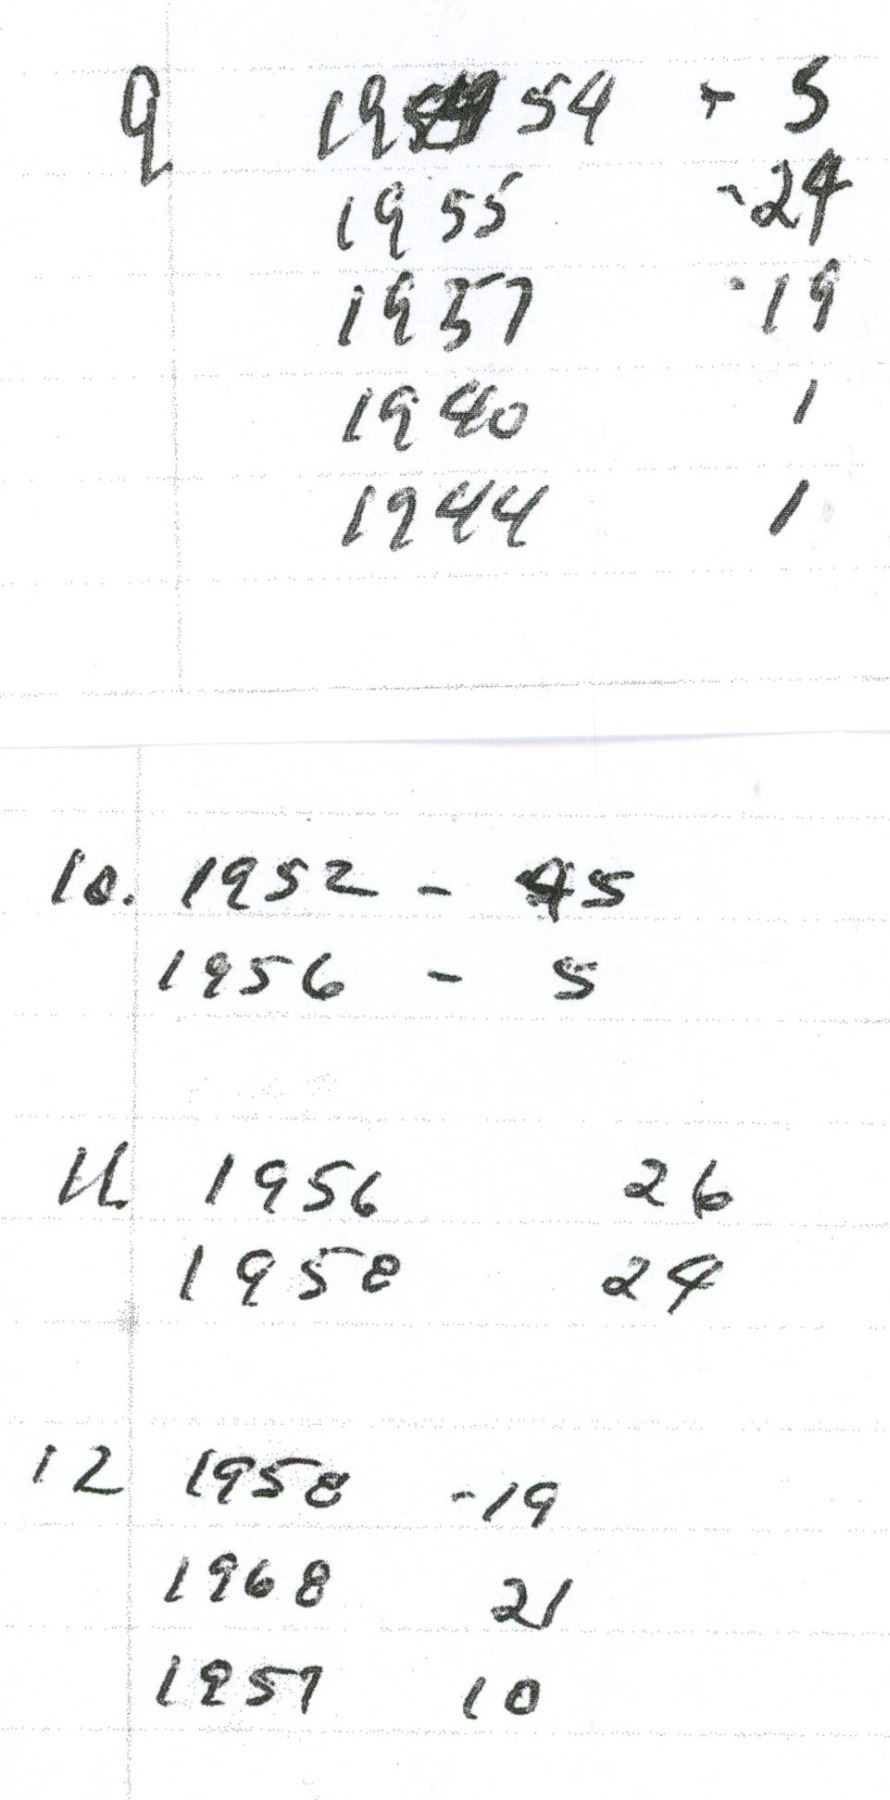 9 1954 - 5
1955 - 24
1957 - 19
1940 1
1944 1
10. 1952 - 45
1956 - 5
11. 1956 26
1958 24
12 1958 - 19
1968 21
1957 10